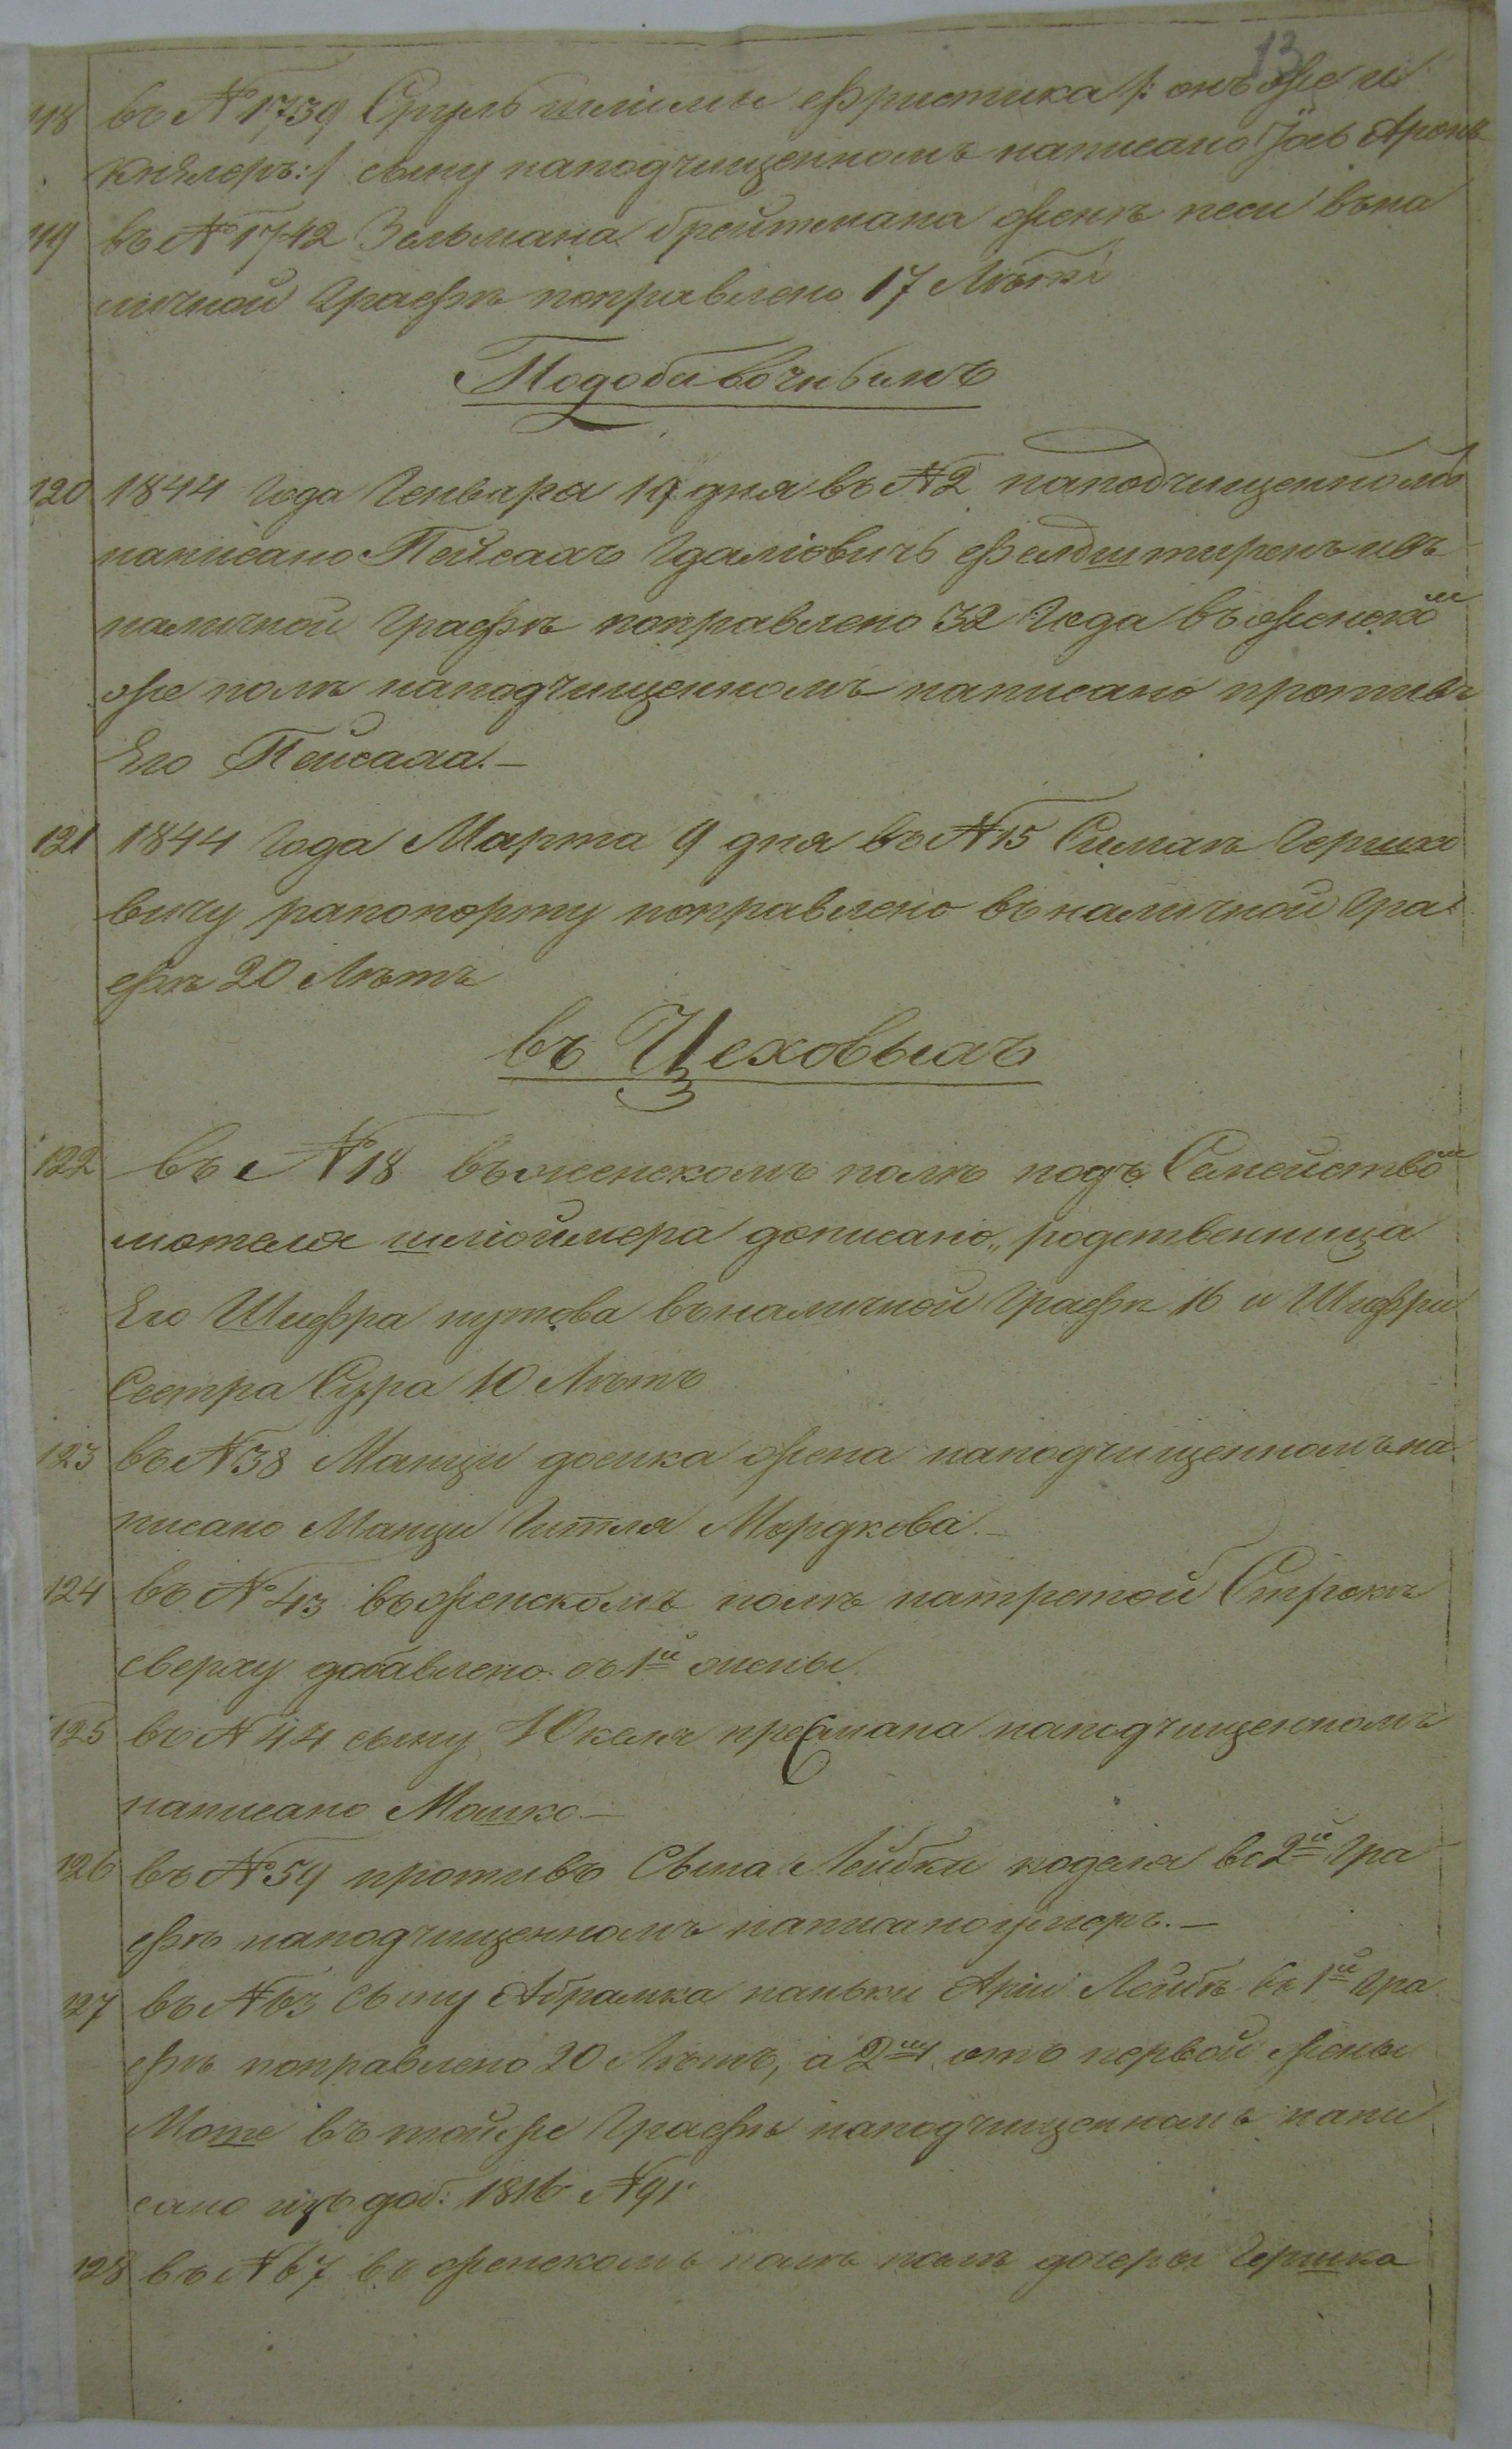 13
118 въ № 1739 Сруль шлiомы фристика /: онъ же и
кнелеръ :/ сыну наподчищенномъ написано Iось Аронъ
119 въ № 1742 Зельмана бройтмана женѣ песи въ на
личной Графѣ поправлено 17 Лѣтъ
Подобавочнымъ
120 1844 Года Генваря 19 дня въ № 2 наподчищенномъ
написано Пейсахъ Гдалiовичъ Фелдштиренъ ивъ
наличной Графѣ поправлено 32 Года въ женском
же полѣ наподчищенномъ написано противъ
Его Пейсаха.—
121 1844 Года Марта 9 дня въ № 15 Симахѣ Гершко
вичу рапопорту поправлено въ наличной Гра
фѣ 20 Лѣтъ
въ Цеховыхъ
122 въ № 18 въ женскомъ полѣ подъ Семейством
мотеля шлiоймера дописано „ родственница
Его Шифра путова въ наличной Графѣ 16 и Шифри
Сестра Сура 10 Лѣтъ
123 въ № 38 Манци доенка жена наподчищенномъ на
писано Манци Гитля Мордкова.—
124 въ № 43 въ женскомъ полѣ натретой Строкѣ
сверху добавлено съ 1й жены
125 въ № 44 сыну Юкеля пресмана наподчищенномъ
написано Мошко.—
126 въ № 59 противъ Сына Лейбки коделя во 2й Гра
фѣ наподчищенномъ написано умеръ.—
127 въ № 63 Сыну Абрамка паньки Арiи Лейбѣ въ 1й Гра
фѣ поправлено 20 Лѣтъ, а 2му отъ первой жены
Моше въ той же Графѣ наподчищенномъ напи
сано изъ доб: 1816 № 91
128 въ № 67 въ женскомъ полѣ лѣта дочеры Гершка